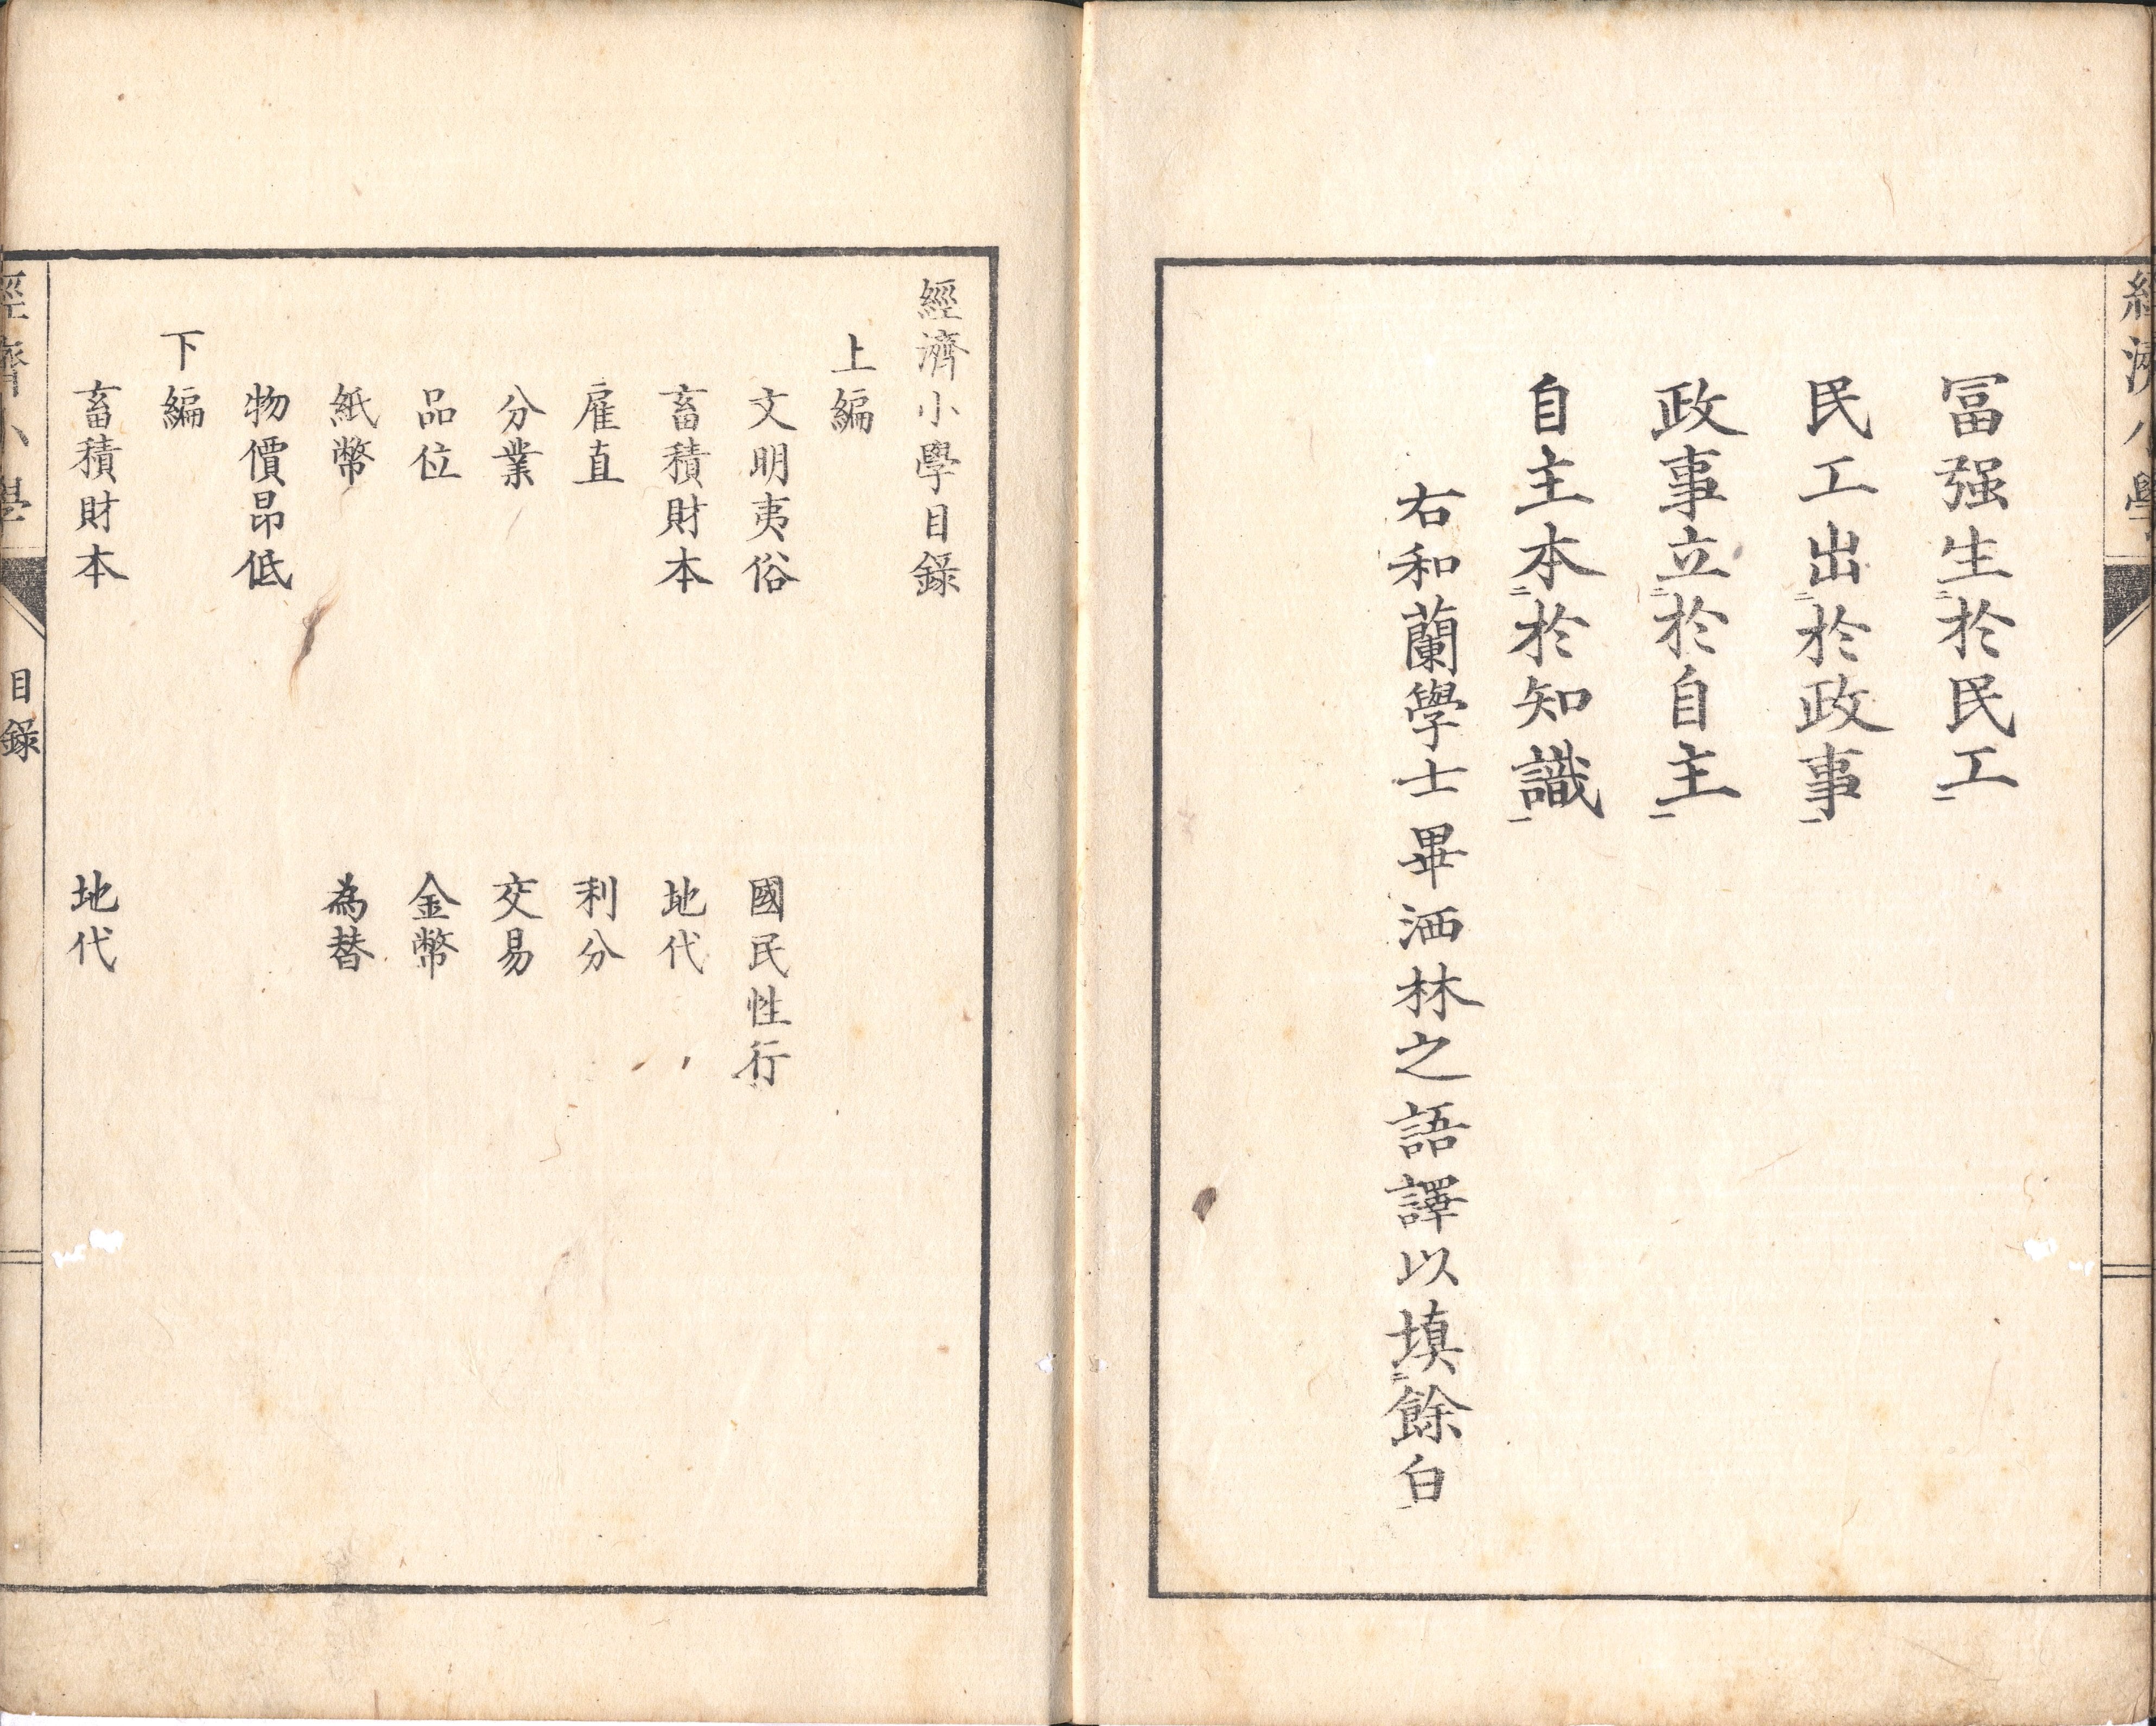 冨强生於民工
民工出於政事
政事立於自主
自主本於知識
右和蘭學士畢洒林之語譯以填餘白
經濟小學目錄
上編
文明夷俗 國民性行
畜積財本 地代
雇直 利分
分業 交易
品位 金幣
紙幣 為替
物價昂低
下編
畜積財本 地代
經濟小學 目錄